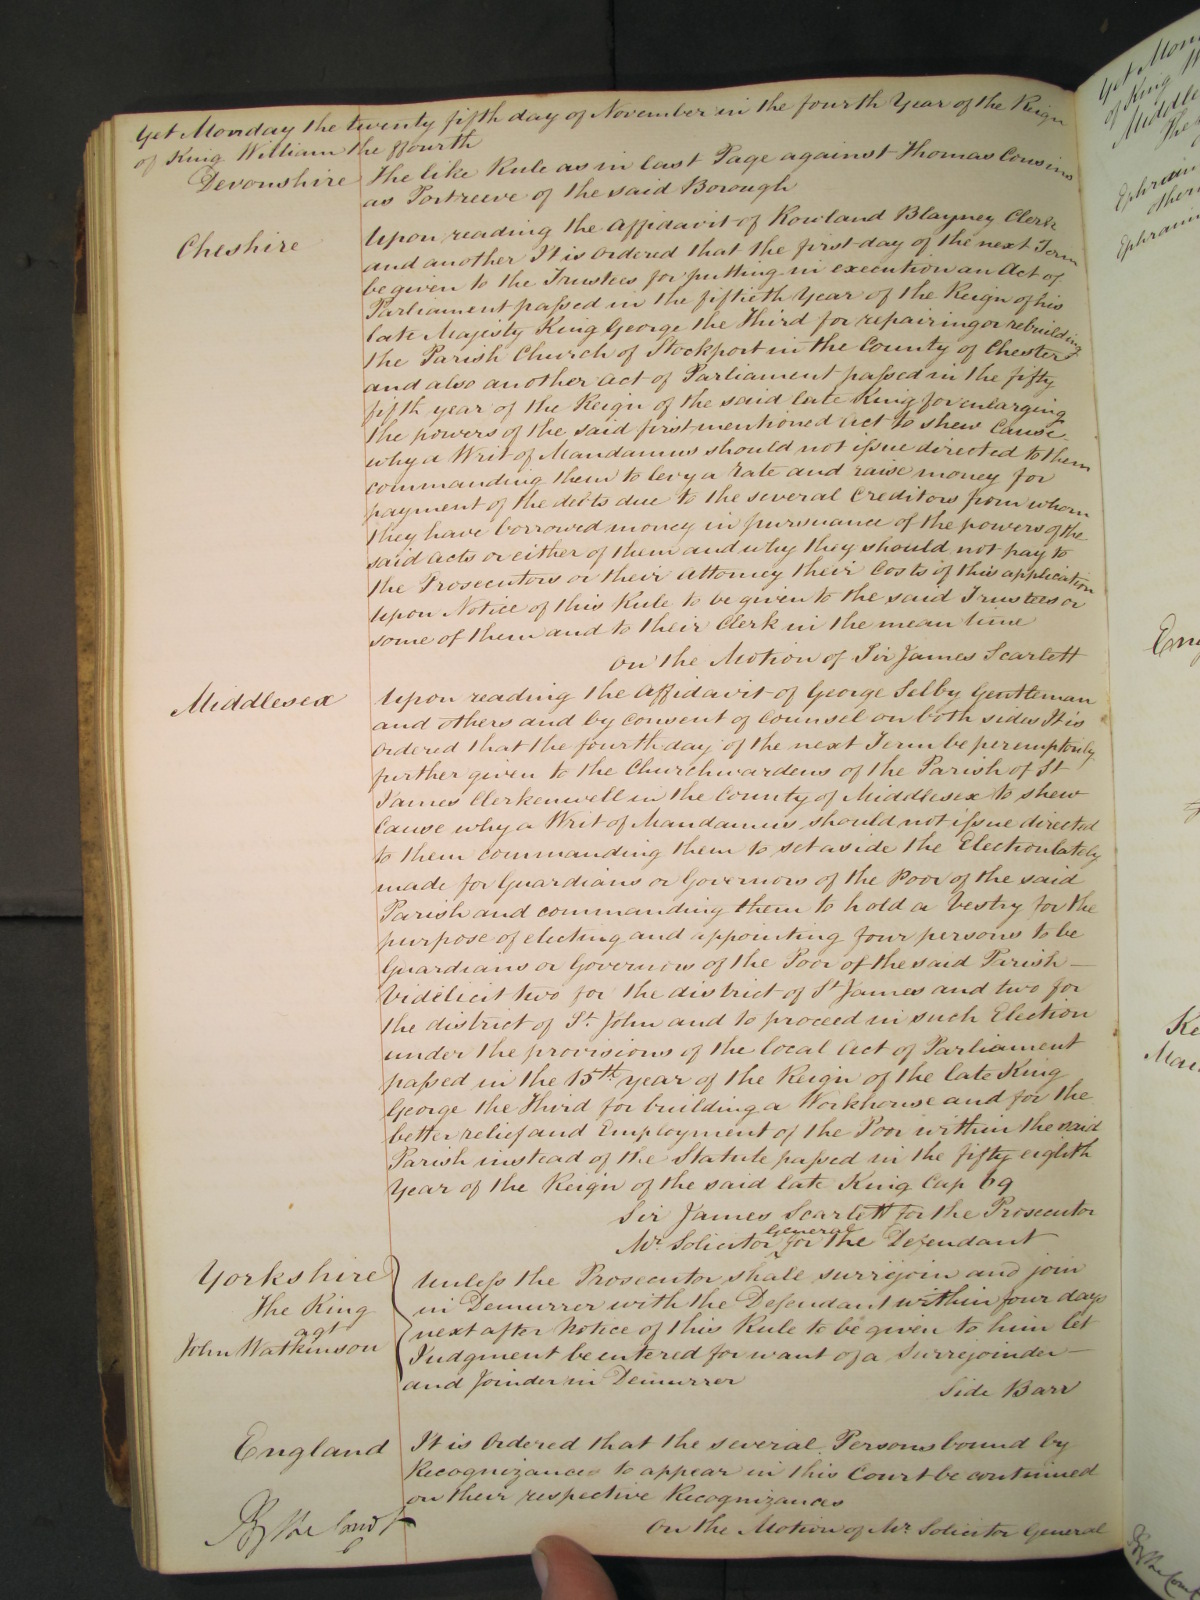 Yet Monday the twenty fifth day of November in the fourth Year of the Reign
of King William the ffourth
Devonshire The like Rule as in last Page against Thomas Cousins
as Portreeve of the said Borough
Cheshire Upon reading the Affidavit of Rowland Blayney Clerk
and another It is Ordered that the first day of the next Term
be given to the Trustees for putting in execution an Act of
Parliament passed in the fiftieth Year of the Reign of his
late Majesty King George the Third for repairing or rebuilding
the Parish Church of Stockport in the County of Chester
and also another Act of Parliament passed in the fifty
fifth year of the Reign of the said late King for enlarging
the powers of the said first mentioned Act to shew Cause
why a Writ of Mandamus should not issue directed to them
commanding them to levy a rate and raise money for
payment of the debts due to the several Creditors from whom
they have borrowed money in pursuance of the powers of the
said Acts or either of them and why they should not pay to
the Prosecutors or their Attorney their Costs of this application
Upon Notice of this Rule to be given to the said Trustees or
some of them and to their Clerk in the mean time
On the Motion of Sir James Scarlett
Middlesex Upon reading the Affidavit of George Selby Gentleman
and others and by Consent of Counsel on both sides It is
Ordered that the fourth day of the next Term be peremptorily
further given to the Churchwardens of the Parish of St
James Clerkenwell in the County of Middlesex to shew
Cause why a Writ of Mandamus should not issue directed
to them commanding them to set aside the Election lately
made for Guardians or Governors of the Poor of the said
Parish and commanding them to hold a Vestry for the
purpose of electing and appointing four persons to be
Guardians or Governors of the Poor of the said Parish
Videlicit two for the district of St James and two for
the district of St. John and to proceed in such Election
under the provisions of the local Act of Parliament
passed in the 15th year of the Reign of the late King
George the Third for building a Workhouse and for the
better relief and Employment of the Poor within the said
Parish instead of the Statute passed in the fifty eighth
Year of the Reign of the said late King Cap 69
Sir James Scarlett for the Prosecutor
Mr. Solicitor General for the Defendant
Yorkshire Unless the Prosecutor shall surrejoin and join
The King in Demurrer with the Defendant within four days
agt next after Notice of this Rule to be given to him let
John Watkinson Judgment be entered for want of a Surrejoinder
and Joinder in Demurrer
Side Barr
England It is Ordered that the several Persons bound by
Recognizances to appear in this Court be continued
on their respective Recognizances
On the Motion of Mr. Solicitor General
By the Court
Yet Mon
of King W
Middle
The
Ephraim
other
Ephraim
En
Ke
Man
By the Court